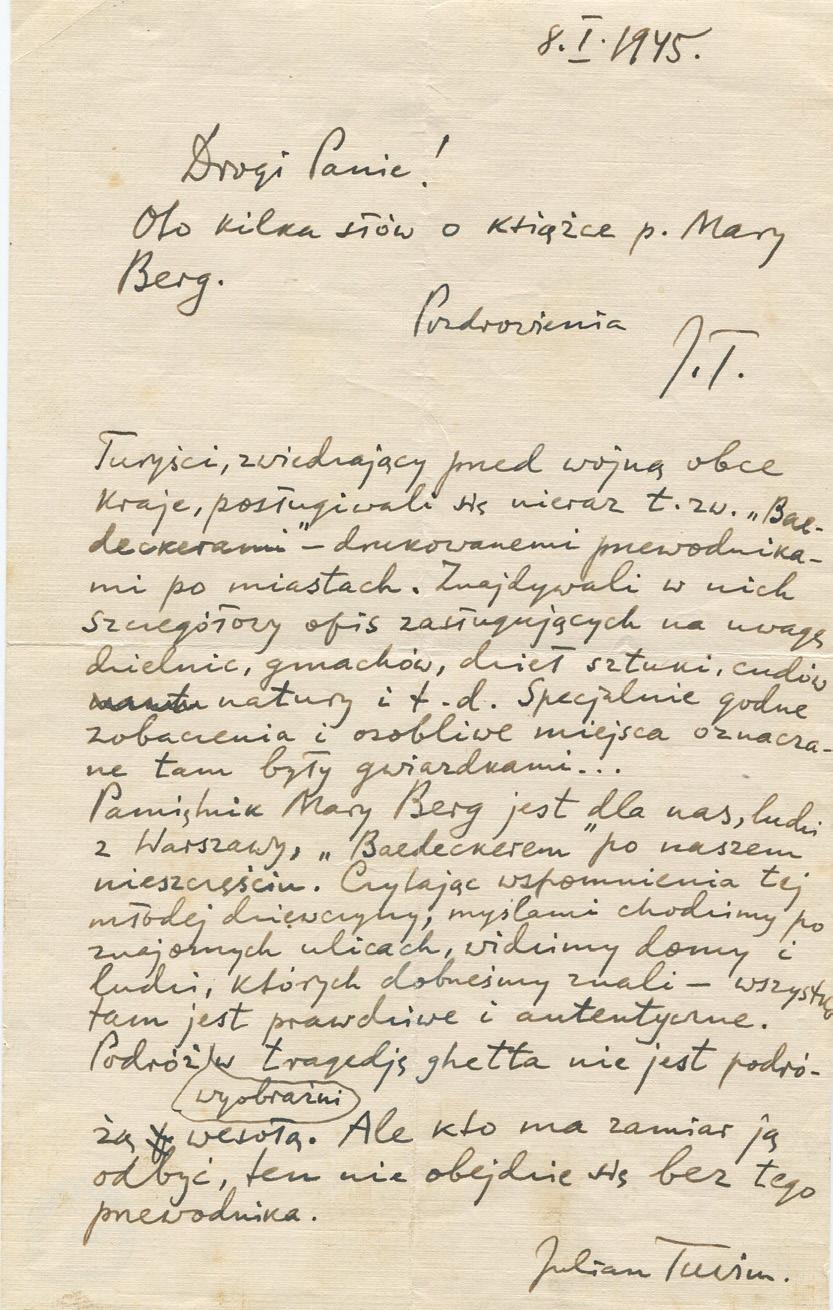 8.I.1945.
Drogi Panie!
Oto kilka słów o książce p. Mary
Berg.
Pozdrowienia
J.T.
Turyści, zwiedzający przed wojną obce
kraje, posługiwali się nieraz t.zw. „Bae-
deckerami" – drukowanemi przewodnika-
mi po miastach. Znajdywali w nich
szczegółowy opis zasługujących na uwagę
dzielnic, gmachów, dzieł sztuki, cudów
natury i t.d. Specjalnie godne
zobaczenia i osobliwe miejsca oznacza-
ne tam były gwiazdkami...
Pamiętnik Mary Berg jest dla nas, ludzi
z Warszawy, „Baedeckerem" po naszem
nieszczęściu. Czytając wspomnienia tej
młodej dziewczyny, myślami chodzimy po
znajomych ulicach, widzimy domy i
ludzi, których dobrześmy znali – wszystko
tam jest prawdziwe i autentyczne.
Podróż w tragedję ghetta nie jest podró-
wyobraźni
żą wesołą. Ale kto ma zamiar ją
odbyć, ten nie obejdzie się bez tego
przewodnika.
Julian Tuwim.